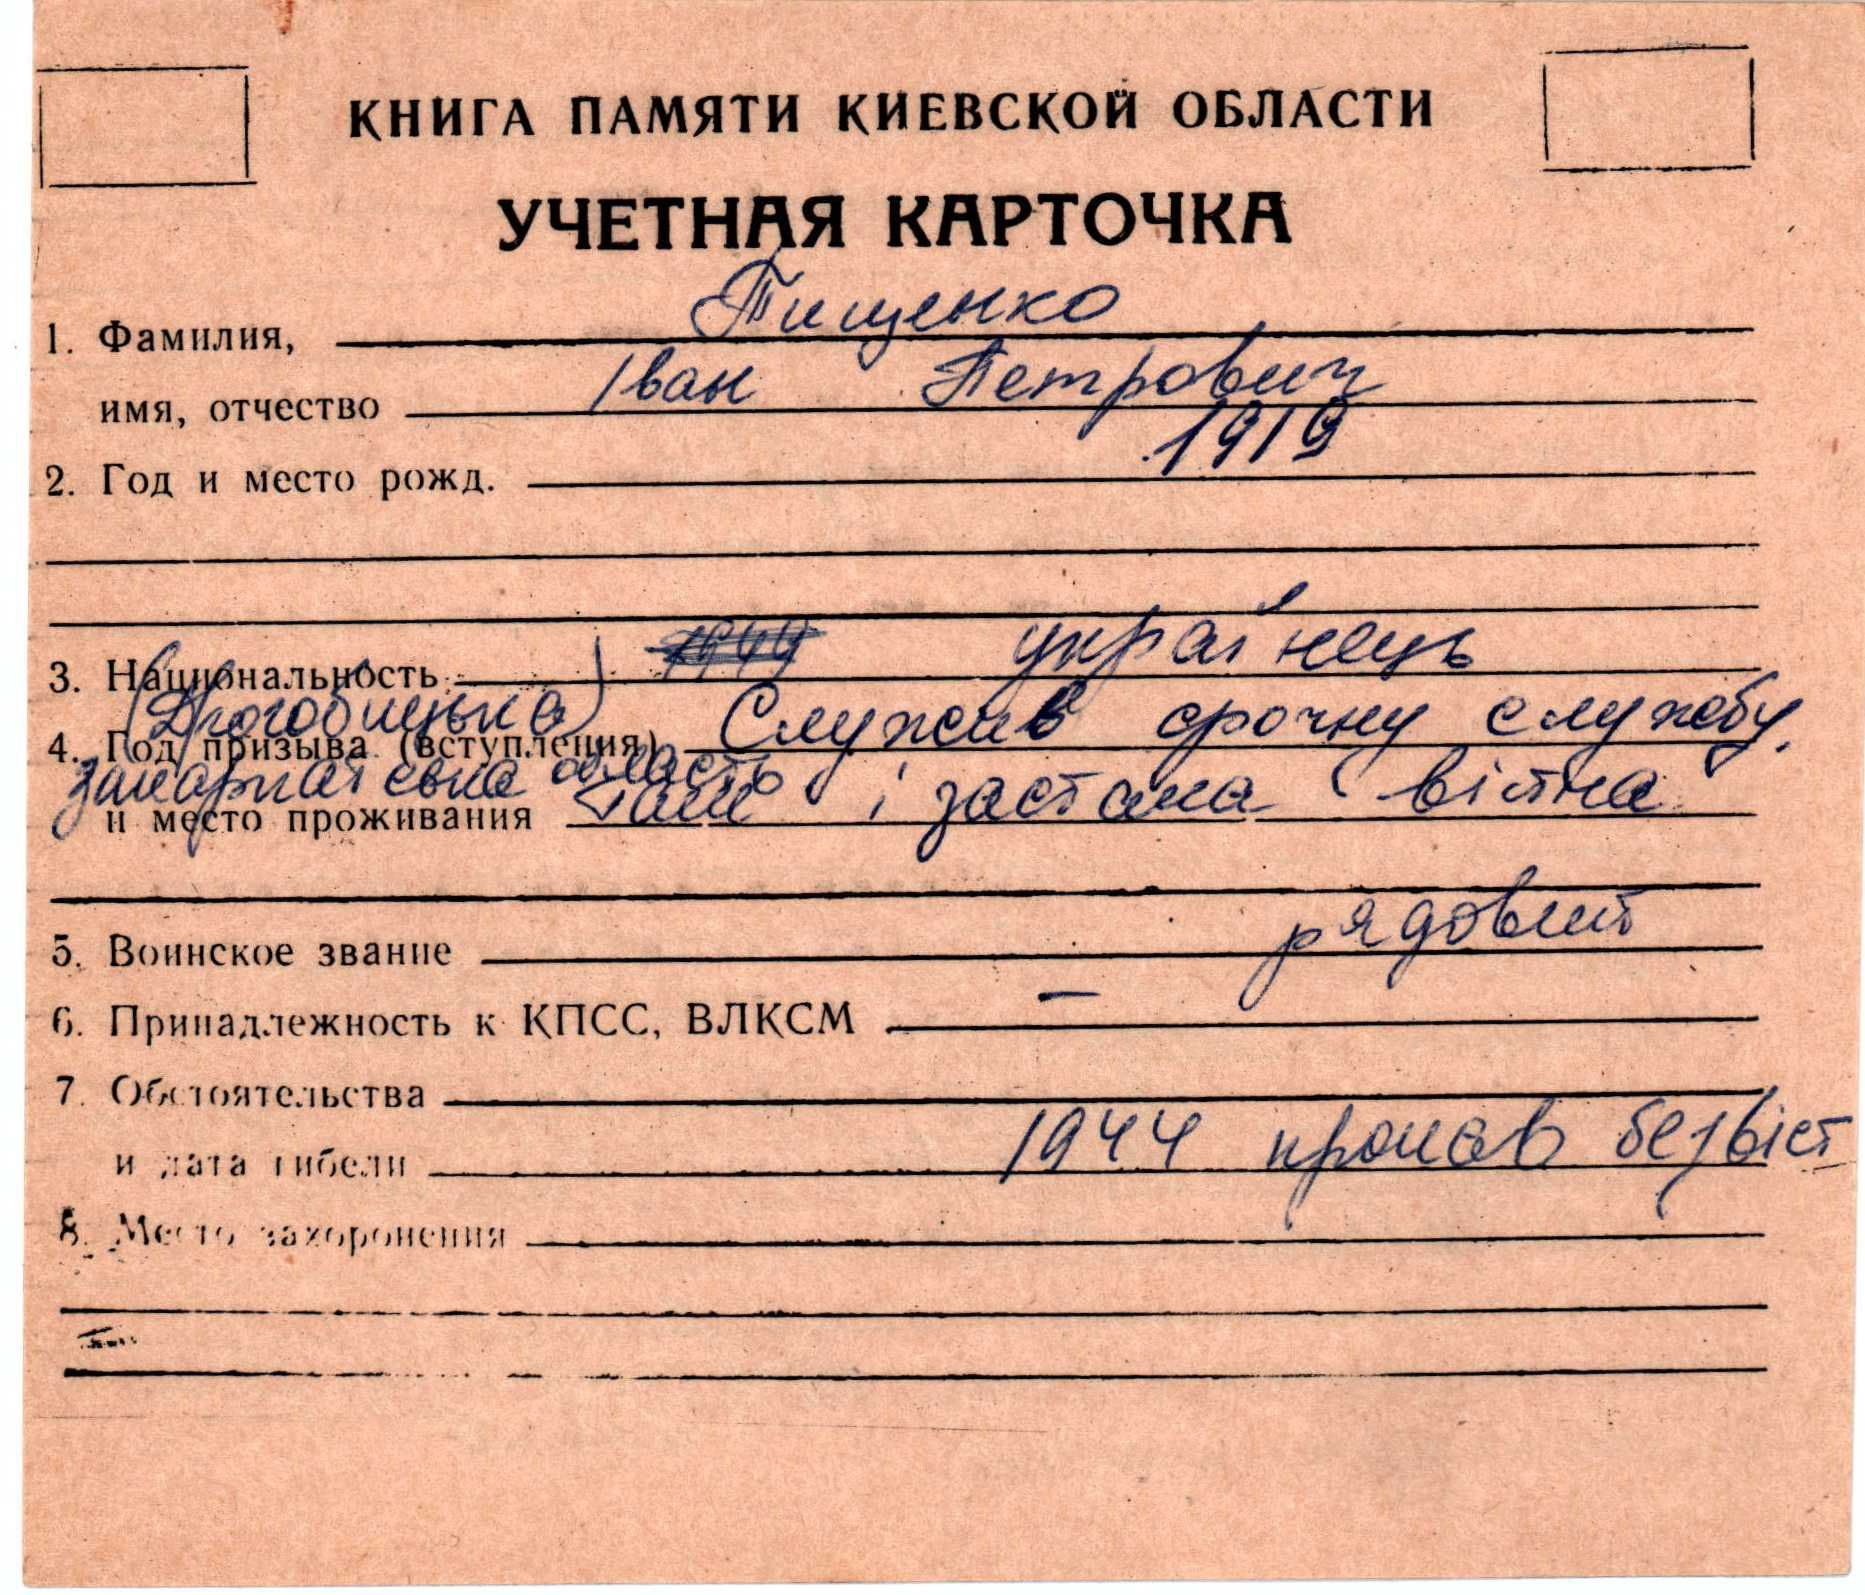 КНИГА ПАМЯТИ КИЕВСКОЙ ОБЛАСТИ
УЧЕТНАЯ КАРТОЧКА
1. Фамилия, Тищенко
имя, отчество Іван Петрович
2. Год и место рожд. 1919
3. Национальность 1944 українець
(Дрогобицька)
4. Год призыва (вступления) Служив срочну службу,
закарпатська область
и место проживания там і застала війна
5. Воинское звание рядовий
6. Принадлежность к КПСС, ВЛКСМ —
7. Обстоятельства
и дата гибели 1944 пропав безвіст
8. Место захоронения